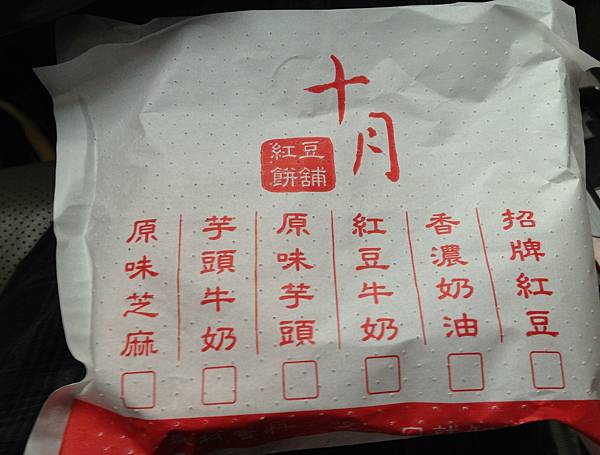 十月
紅豆
餅舖
招牌紅豆
香濃奶油
紅豆牛奶
原味芋頭
芋頭牛奶
原味芝麻